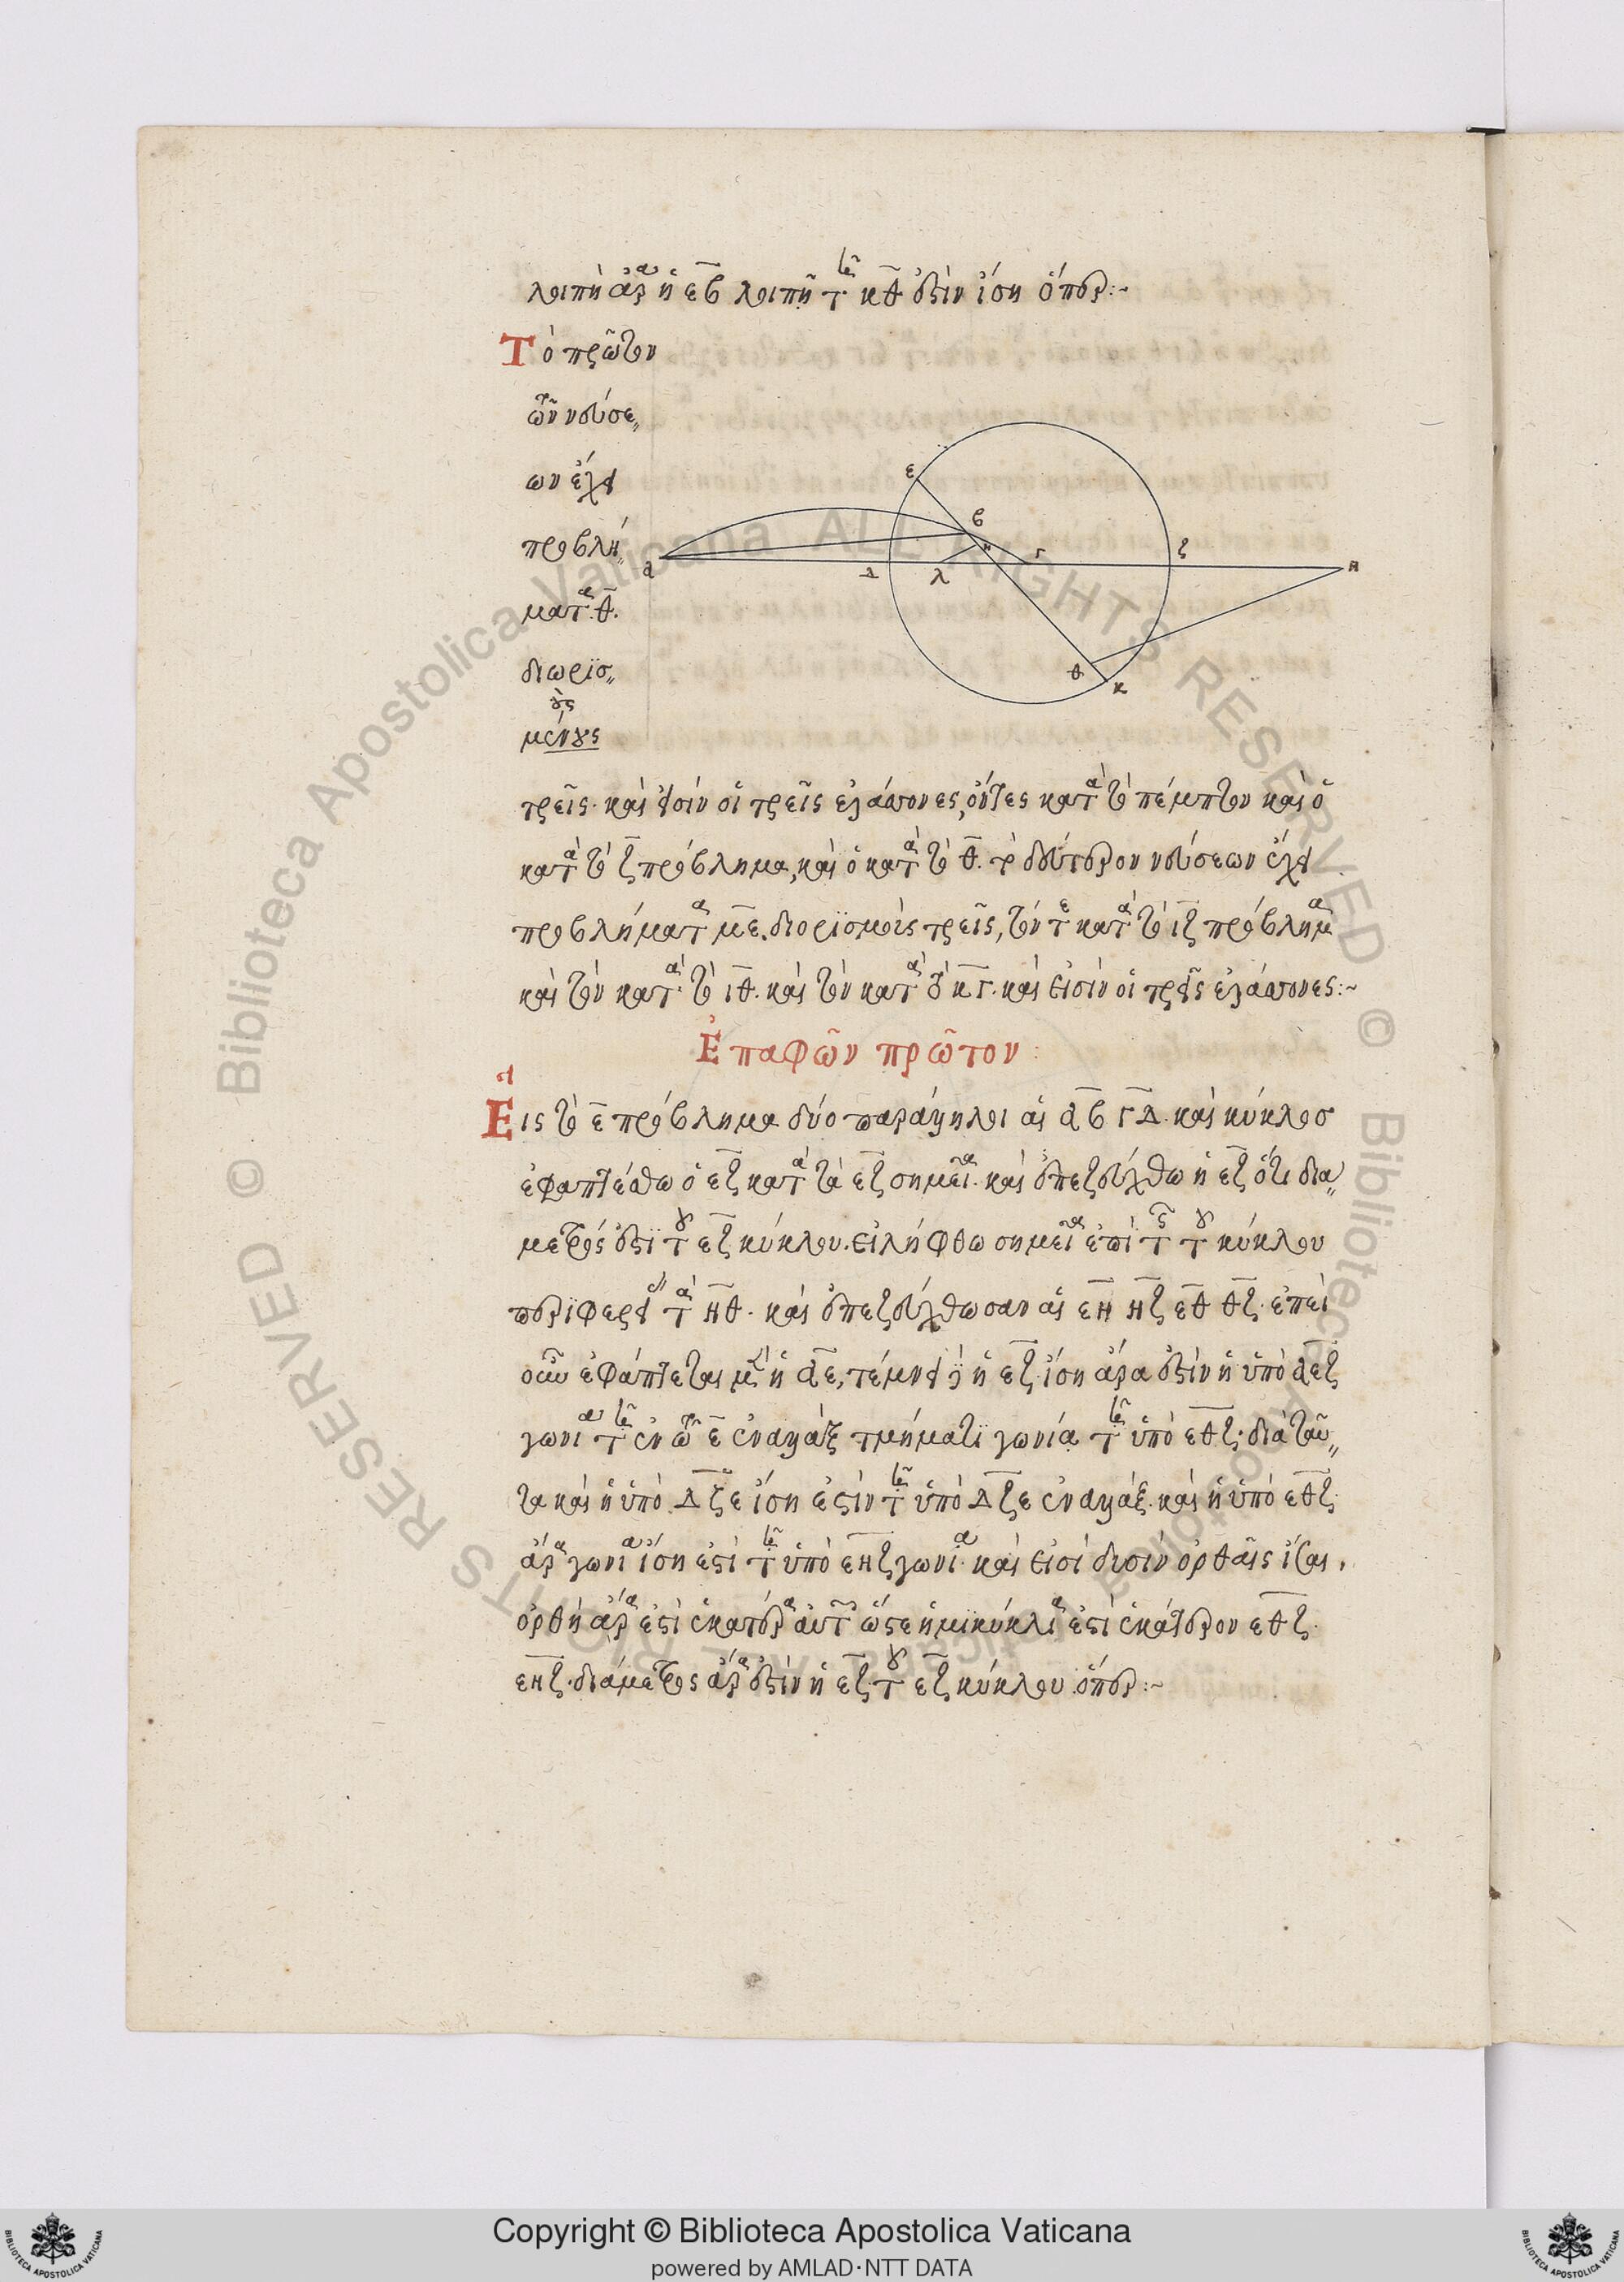 λοιπὴ ἄρα ἡ εβ λοιπῇ τῇ κθ ἐστὶν ἴση ὅπερ:~
Τὸ πρῶτον
τῶν νεύσε
ων ἔχει
προβλή
ματα θ.
διωρϊσ
οὺς
μένους
ε
β
α
Δ
λ
η
Γ
ζ
Η
θ
κ
τρεῖς· καὶ εἰσὶν οἱ τρεῖς ἐλάττονες, ὄντες κατὰ τὸ πέμπτον καὶ ὁ
κατὰ τὸ ζ πρόβλημα, καὶ ὁ κατὰ τὸ θ. τὸ δεύτερον νεύσεων ἔχει
προβλήματα με. διορϊσμοὺς τρεῖς, τόν τε κατὰ τὸ ιζ πρόβλημα
καὶ τὸν κατὰ τὸ ιθ. καὶ τὸν κατὰ τὸ κγ. καὶ εἰσὶν οἱ τρεῖς ἐλάττονες:~
Ἐπαφῶν πρῶτον:
α
Εις τὸ ε πρόβλημα δύο παράλληλοι αἱ αβ γΔ. καὶ κύκλοσ
ἐφαπτέσθω ὁ εζ κατὰ τὰ εζ σημεῖα. καὶ ἐπεζεύχθω ἡ εζ ὅτι διά
μετρός ἐστϊ τοῦ εζ κύκλου. εἰλήφθω σημεῖα ἐπὶ τῆς τοῦ κύκλου
περϊφερείας τὰ Ηθ. καὶ ἐπεζεύχθωσαν αἱ εΗ Ηζ εθ θζ. ἐπεὶ
οὖν ἐφάπτεται μὲν ἡ αε, τέμνει δὲ ἡ εζ. ἴση ἄρα ἐστὶν ἡ ὑπὸ αεζ
γωνία τῇ ἐν τῶ ε ἐναλλὰξ τμήματϊ γωνία τῇ ὑπὸ εθζ. διὰ ταῦ
τα καὶ ἡ ὑπὸ Δζε ἴση ἐστὶν τῇ ὑπὸ Δζε ἐναλλάξ. καὶ ἡ ὑπὸ εθζ
ἄρα γωνία ἴση ἐστὶ τῇ ὑπὸ εηζ γωνία. καὶ εἰσὶ δυσὶν ὀρθαῖς ἴσαι,
ὀρθὴ ἄρα ἐστὶ ἑκατέρα αὐτῶν ὥστε ἡμϊκύκλια ἐστὶ ἑκάτερον εθζ.
εηζ. διάμετρος ἄρα ἐστὶν ἡ εζ τοῦ εζ κύκλου ὅπερ:~
© Biblioteca Apostolica Vaticana ALL RIGHTS RESERVED
Copyright © Biblioteca Apostolica Vaticana
powered by AMLAD·NTT DATA
BIBLIOTECA APOSTOLICA VATICANA
BIBLIOTECA APOSTOLICA VATICANA